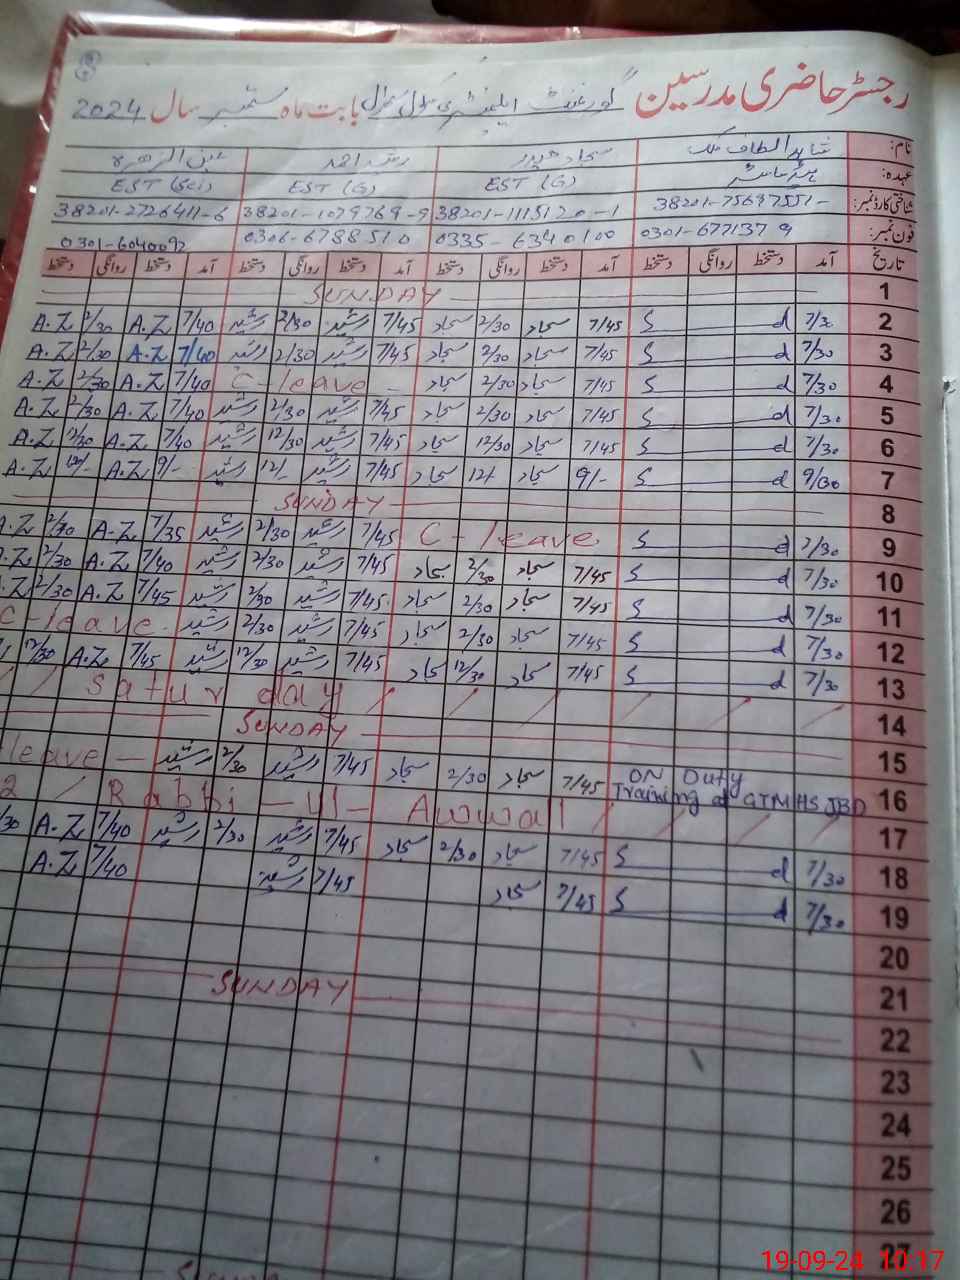 رجسٹر حاضری مدرسین گورنمنٹ ایلیمنٹری سکول بابت ماہ ستمبر سال 2024
نام: شاہد الطاف ملک سجاد حیدر رشید احمد عین الزھرہ
عہدہ: ہیڈ ماسٹر EST (G) EST (G) EST (Sci)
شناختی کارڈ نمبر: 38201-7569755 1- 38201-1115120-1 38201-1079769-9 38201-2726411-6
فون نمبر: 0301-6771379 0335-6340100 0306-6788510 0301-6040092
تاریخ آمد دستخط روانگی دستخط آمد دستخط روانگی دستخط آمد دستخط روانگی دستخط آمد دستخط روانگی دستخط
1 SUNDAY
2 7/30 S d 7/45 سجاد 2/30 سجاد 7/45 رشید 2/30 رشید 7/40 A.Z 2/30 A.Z
3 7/30 S d 7/45 سجاد 2/30 سجاد 7/45 رشید 2/30 رشید 7/40 A.Z 2/30 A.Z
4 7/30 S d 7/45 سجاد 2/30 سجاد C-leave 7/40 A.Z 2/30 A.Z
5 7/30 S d 7/45 سجاد 2/30 سجاد 7/45 رشید 2/30 رشید 7/40 A.Z 2/30 A.Z
6 7/30 S d 7/45 سجاد 12/30 سجاد 7/45 رشید 12/30 رشید 7/40 A.Z 12/30 A.Z
7 9/30 S d 9/- سجاد 12/- سجاد 7/45 رشید 12/- رشید 9/- A.Z A.Z
8 SUNDAY
9 7/30 S d C-leave 7/45 رشید 2/30 رشید 7/35 A.Z 2/30 A.Z
10 7/30 S d 7/45 سجاد 2/30 سجاد 7/45 رشید 2/30 رشید 7/40 A.Z 2/30 A.Z
11 7/30 S d 7/45 سجاد 2/30 سجاد 7/45 رشید 2/30 رشید 7/45 A.Z 2/30 A.Z
12 7/30 S d 7/45 سجاد 2/30 سجاد 7/45 رشید 2/30 رشید C-leave
13 7/30 S d 7/45 سجاد 12/30 سجاد 7/45 رشید 12/30 رشید 7/45 A.Z 12/30
14 Saturday
15 SUNDAY
16 ON Duty Training at GTMHS JBD 7/45 سجاد 2/30 سجاد 7/45 رشید 2/30 رشید leave
17 12 Rabbi-ul-Awwal
18 7/30 S d 7/45 سجاد 2/30 سجاد 7/45 رشید 2/30 رشید 7/40 A.Z /30
19 7/30 S d 7/45 سجاد 7/45 رشید 7/40 A.Z
20
21
22 SUNDAY
23
24
25
26
27
19-09-24 10:17